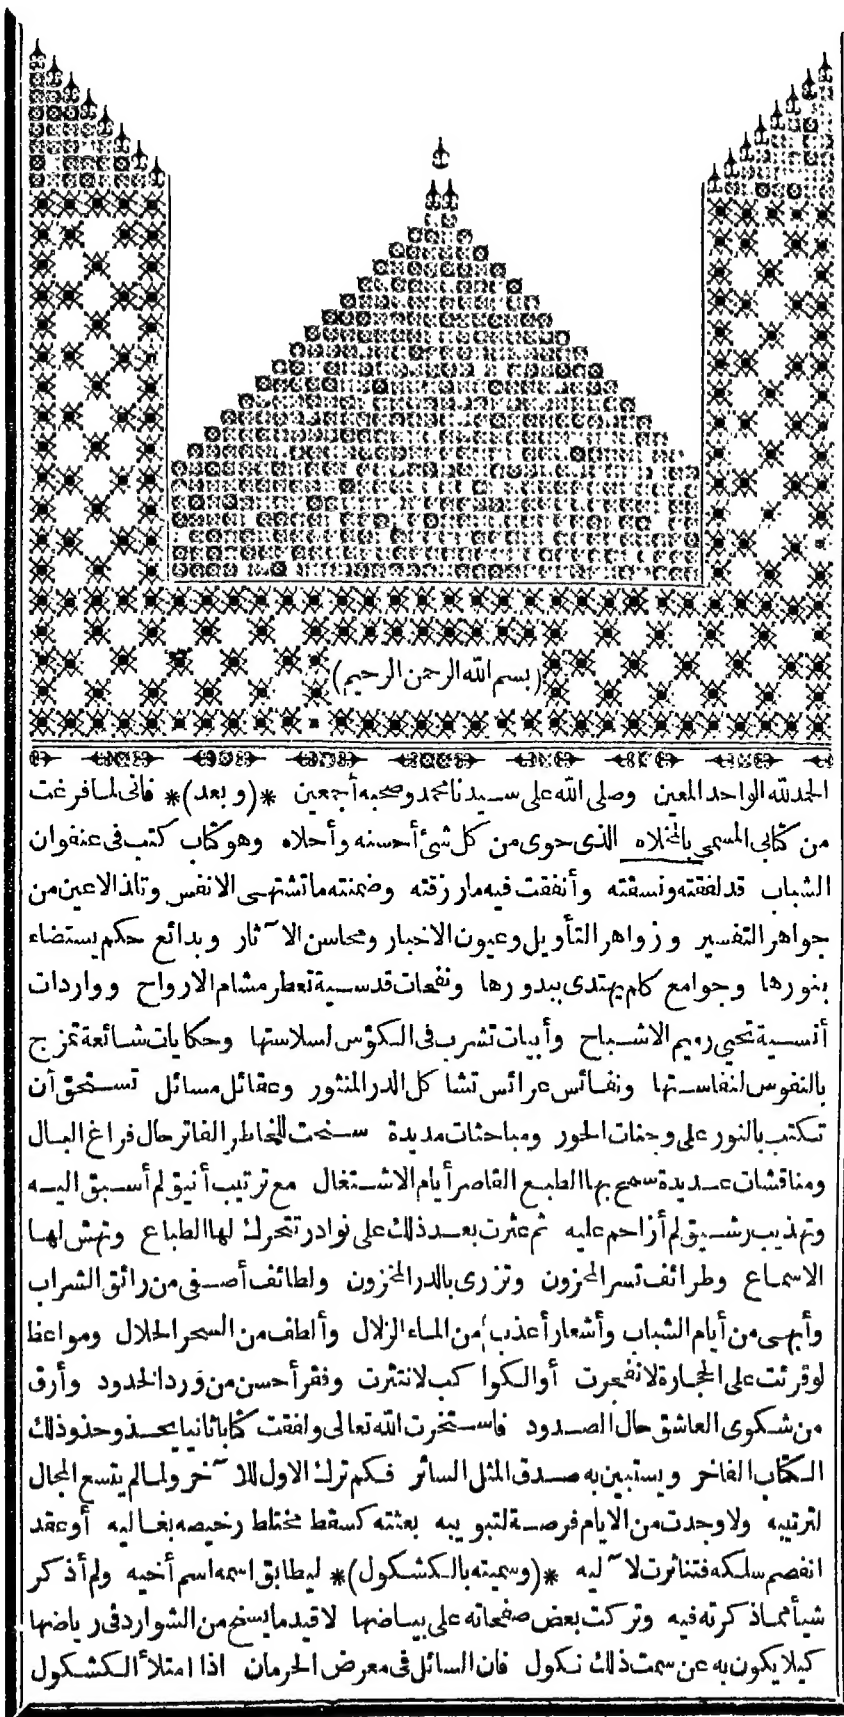 (بسم الله الرحمن الرحيم)
الحمد لله الواحد المعين وصلى الله على سيدنا محمد وصحبه أجمعين *(وبعد)* فانى لما فرغت
من كتابى المسمى بالمخلاه الذى حوى من كل شئ أحسنه وأحلاه وهو كتاب كتب فى عنفوان
الشباب قد لفقته ونسقته وأنفقت فيه ما رزقته وضمنته ما تشتهى الانفس وتلذ الاعين من
جواهر التفسير وزواهر التأويل وعيون الاخبار ومحاسن الآثار وبدائع حكم يستضاء
بنورها وجوامع كلم يهتدى ببدورها ونفحات قدسية تعطر مشام الارواح وواردات
أنسية تحيى رميم الاشباح وأبيات تشرب فى الكؤس لسلاستها وحكايات شائعة تمزج
بالنفوس لنفاستها ونفائس عرائس تشاكل الدر المنثور وعقائل مسائل تستحق أن
تكتب بالنور على وجنات الحور ومباحثات مديدة سنحت للخاطر الفاتر حال فراغ البال
ومناقشات عديدة سمح بها الطبع القاصر أيام الاشتغال مع ترتيب أنيق لم أسبق اليه
وتهذيب رشيق لم أزاحم عليه ثم عثرت بعد ذلك على نوادر تتحرك لها الطباع وتهش لها
الاسماع وطرائف تسر المحزون وتزرى بالدر المخزون ولطائف أصفى من رائق الشراب
وأبهى من أيام الشباب وأشعار أعذب من الماء الزلال وألطف من السحر الحلال ومواعظ
لو قرئت على الحجارة لانفجرت أو الكواكب لانتثرت وفقر أحسن من ورد الخدود وأرق
من شكوى العاشق حال الصدود فاستخرت الله تعالى ولفقت كتابا ثانيا يحذو حذو ذلك
الكتاب الفاخر ويستبين به صدق المثل السائر فكم ترك الاول للآخر ولما لم يتسع المجال
لترتيبه ولا وجدت من الايام فرصة لتبويبه بعثته كسقط مختلط رخيصه بغاليه أو عقد
انفصم سلكه فتناثرت لآليه *(وسميته بالكشكول)* ليطابق اسمه اسم أخيه ولم أذكر
شيأ مما ذكرته فيه وتركت بعض صفحاته على بياضها لاقيد ما يسنح من الشوارد فى رياضها
كيلا يكون به عن سمت ذلك نكول فان السائل فى معرض الحرمان اذا امتلأ الكشكول